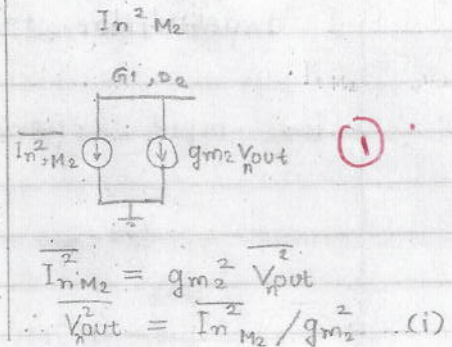 In² M₂
G1, D2
In², M₂ gm₂ Vₙout ①
In² M₂ = gm₂² Vₙ²out
∴ Vₙ²out = In² M₂ / gm₂² ..(i)